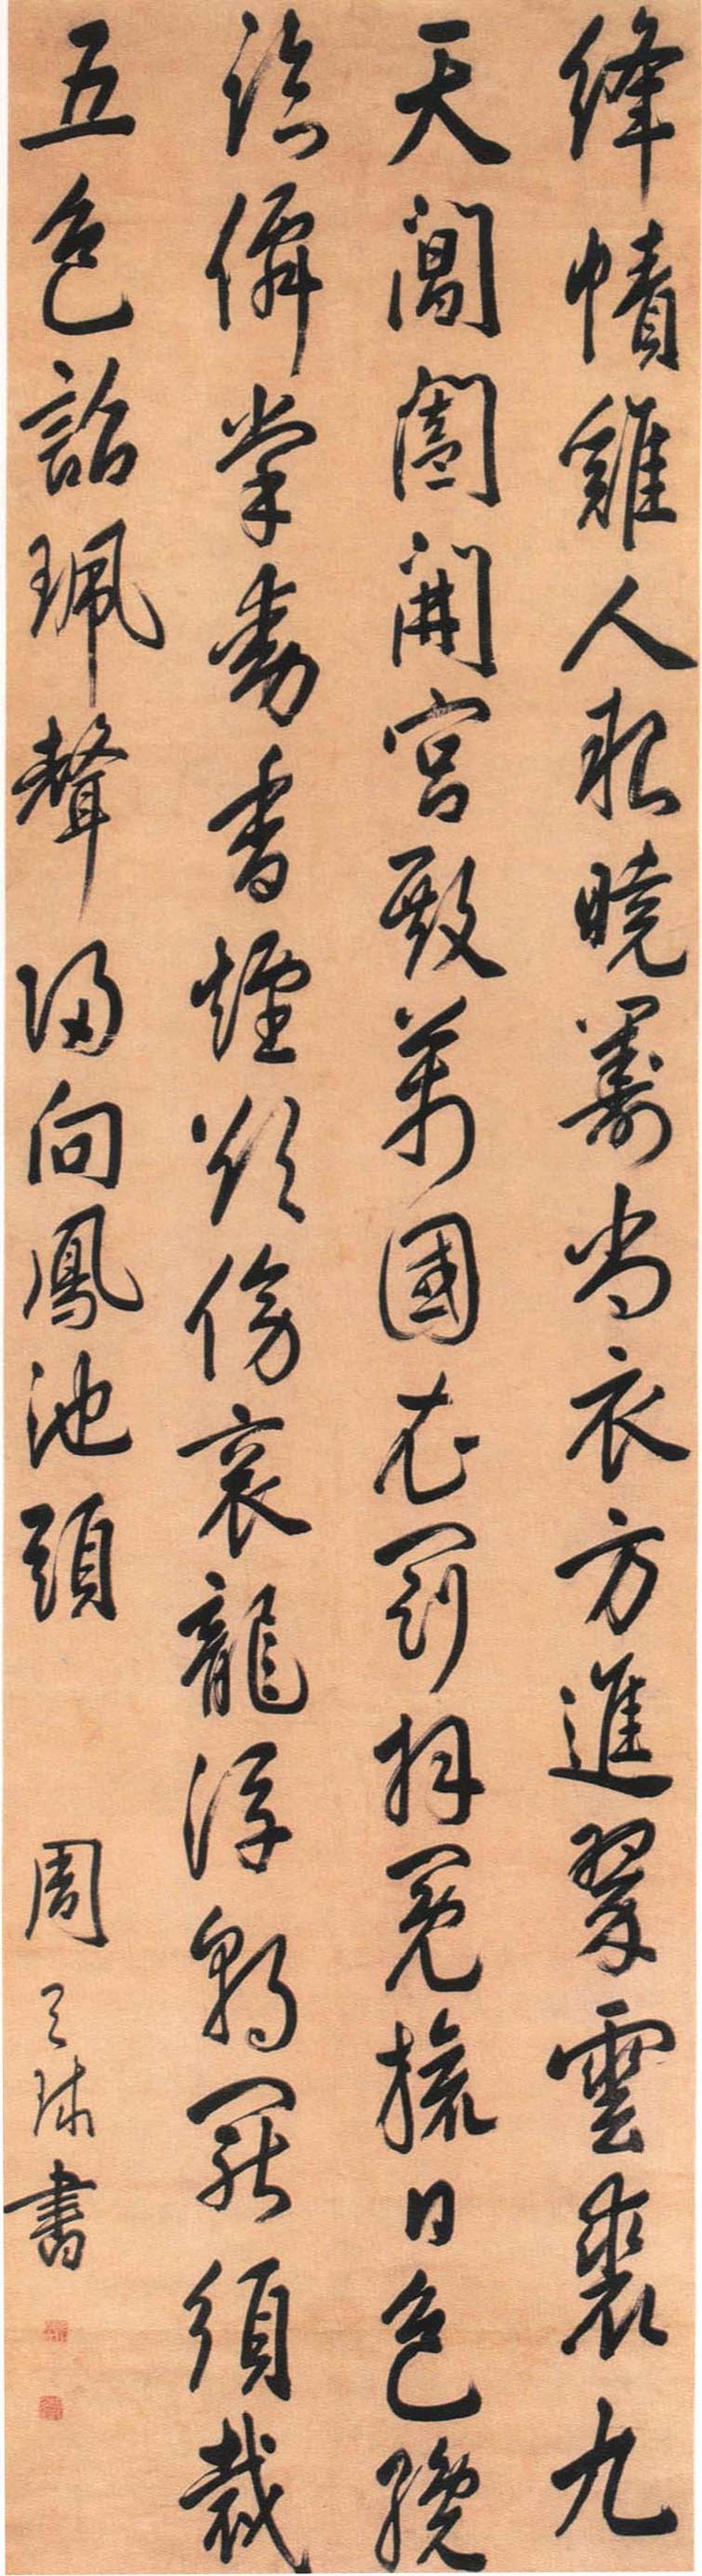 絳幘雞人報曉籌尚衣方進翠雲裘九
天閶闔開宮殿萬國衣冠拜冕旒日色纔
臨僊掌動香煙欲傍袞龍浮朝罷須裁
五色詔珮聲歸向鳳池頭 周天球書